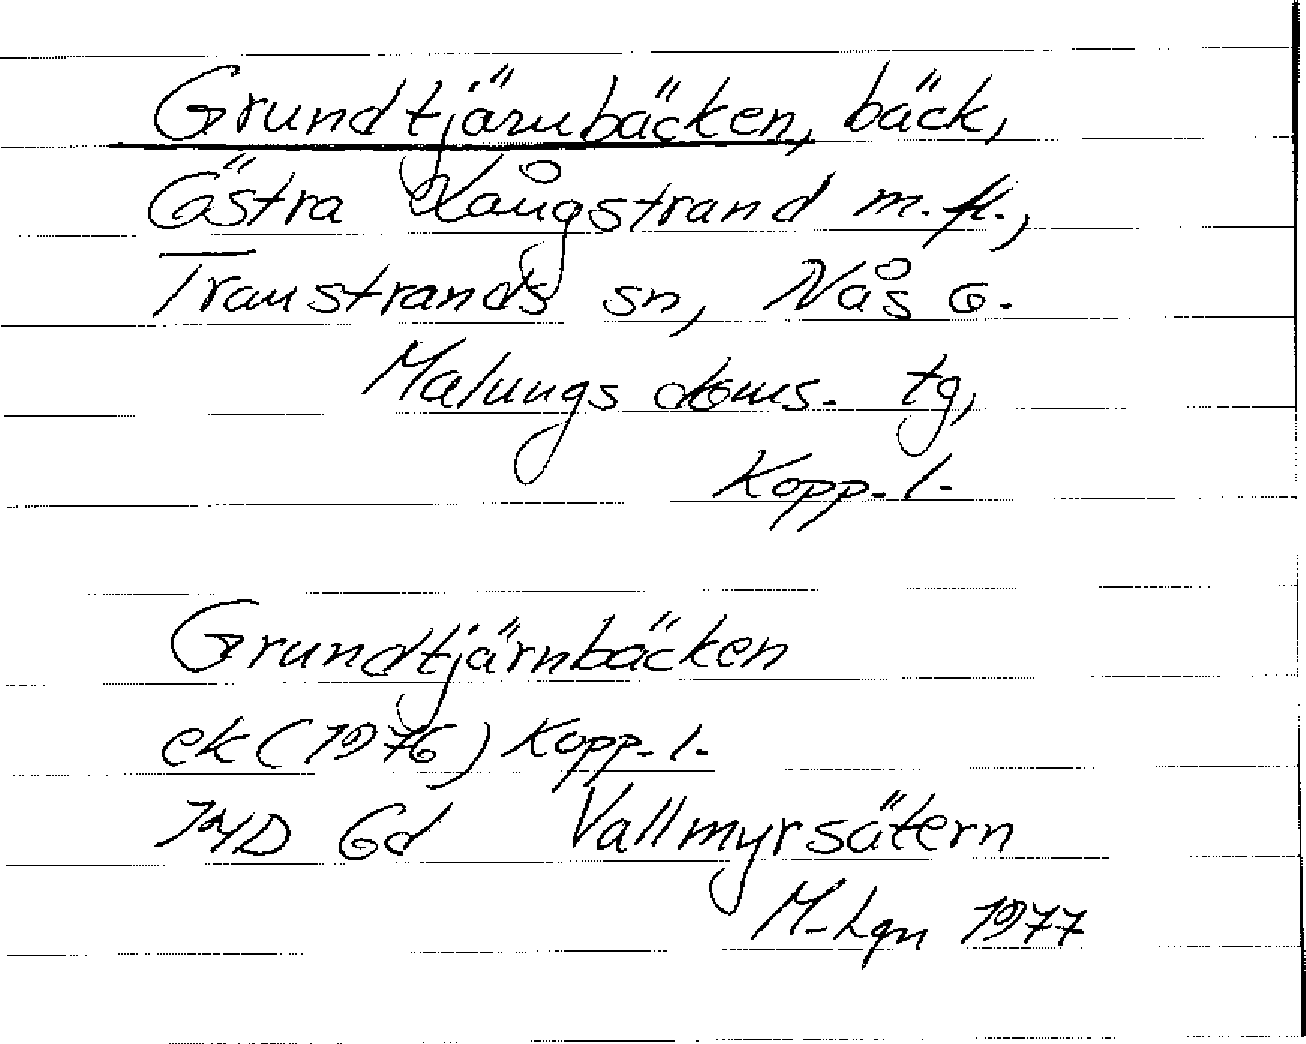 Grundtjärnbäcken, bäck,
Östra Långstrand m.fl.,
Transtrands sn, Nås o.
Malungs doms. tg,
Kopp. l.
Grundtjärnbäcken
ek (1976) Kopp. l.
14D 6d Vallmyrsätern
M-Lgn 1977